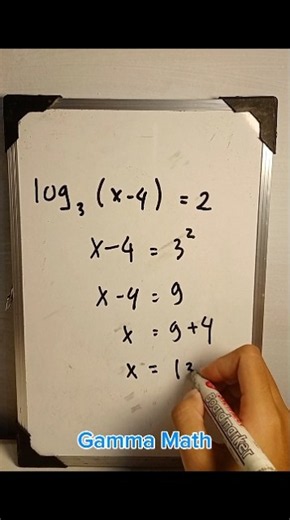 log₃ (x-4) = 2
x-4 = 3²
x-4 = 9
x = 9+4
x = 13
Gamma Math